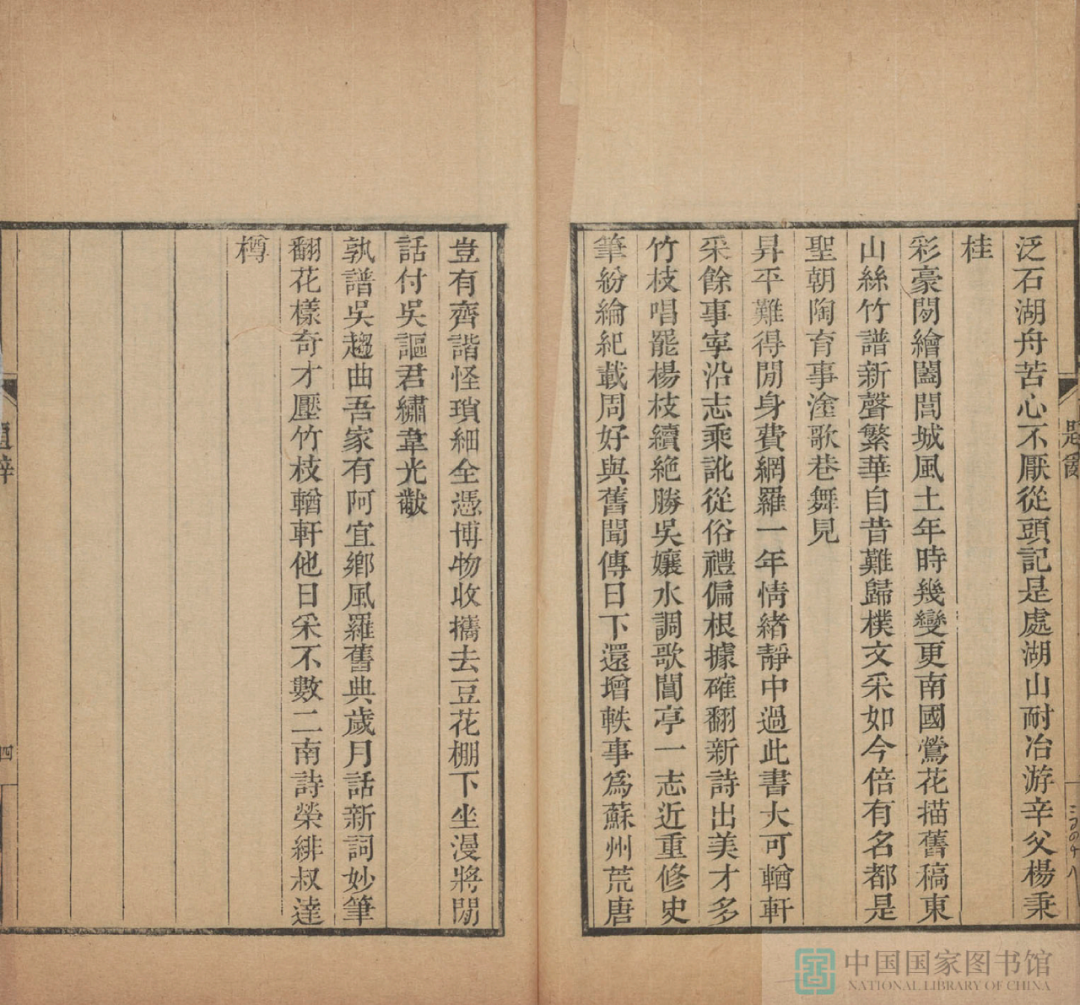 泛石湖舟苦心不厭從頭記是處湖山耐冶游辛父楊秉
桂
彩豪閒繪闔閭城風土年時幾變更南國鶯花描舊稿東
山絲竹譜新聲繁華自昔難歸樸文采如今倍有名都是
聖朝陶育事塗歌巷舞見
昇平難得閒身費網羅一年情緒靜中過此書大可輶軒
采餘事寧沿志乘訛從俗禮偏根據確翻新詩出美才多
竹枝唱罷楊枝續絶勝吳孃水調歌閶亭一志近重修史
筆紛綸紀載周好與舊聞傳日下還增軼事爲蘇州荒唐
豈有齊諧怪瑣細全憑博物收攜去豆花棚下坐漫將閒
話付吳謳君繡韋光黻
孰譜吳趨曲吾家有阿宜鄉風羅舊典歲月話新詞妙筆
翻花樣奇才壓竹枝輶軒他日采不數二南詩榮緋叔達
樽
題
四
中国国家图书馆
NATIONAL LIBRARY OF CHINA